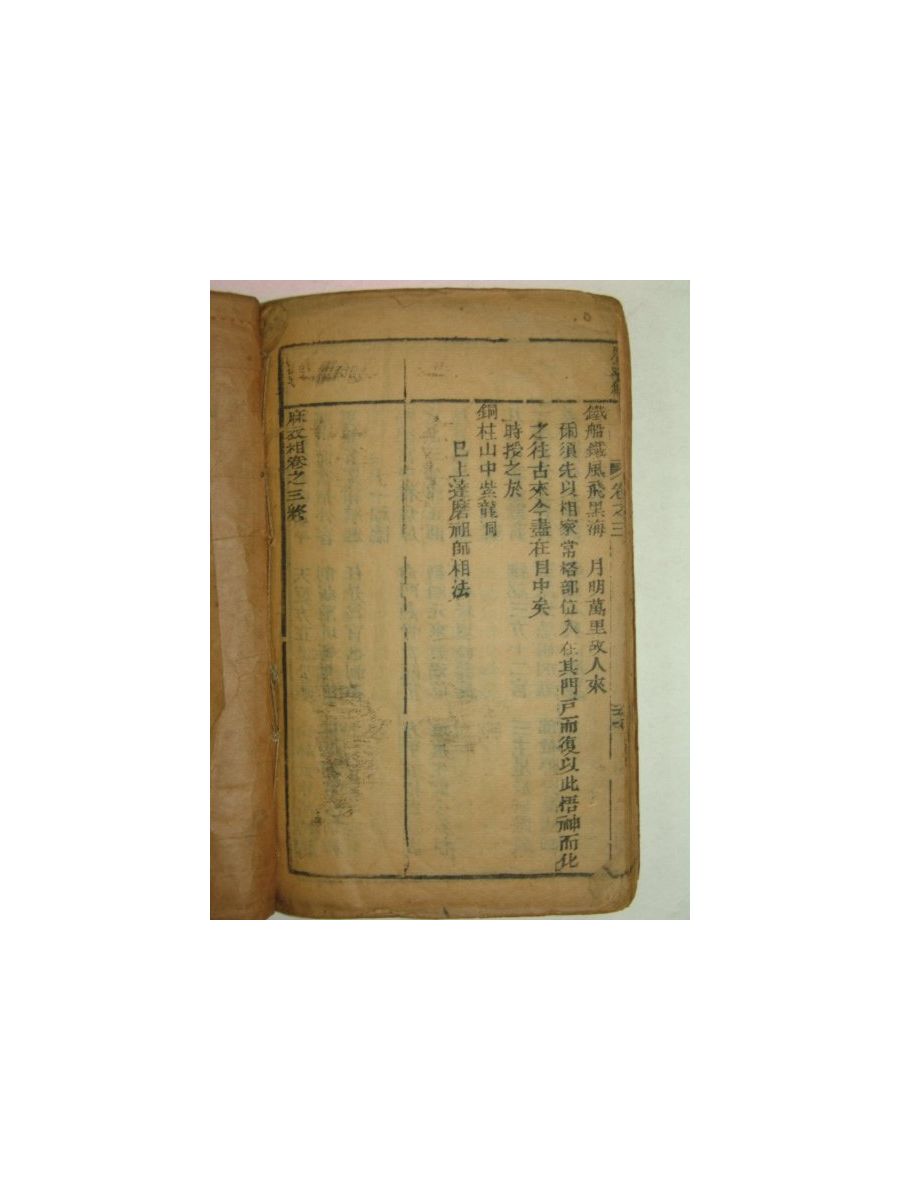 卷之三
鐵船鐵風飛黑海　月明萬里故人來
爾須先以相家常格部位入在其門戸而復以此悟神而化
之往古來今盡在目中矣
時授之於
銅柱山中紫龍洞
已上達磨祖師相法
麻衣相卷之三終